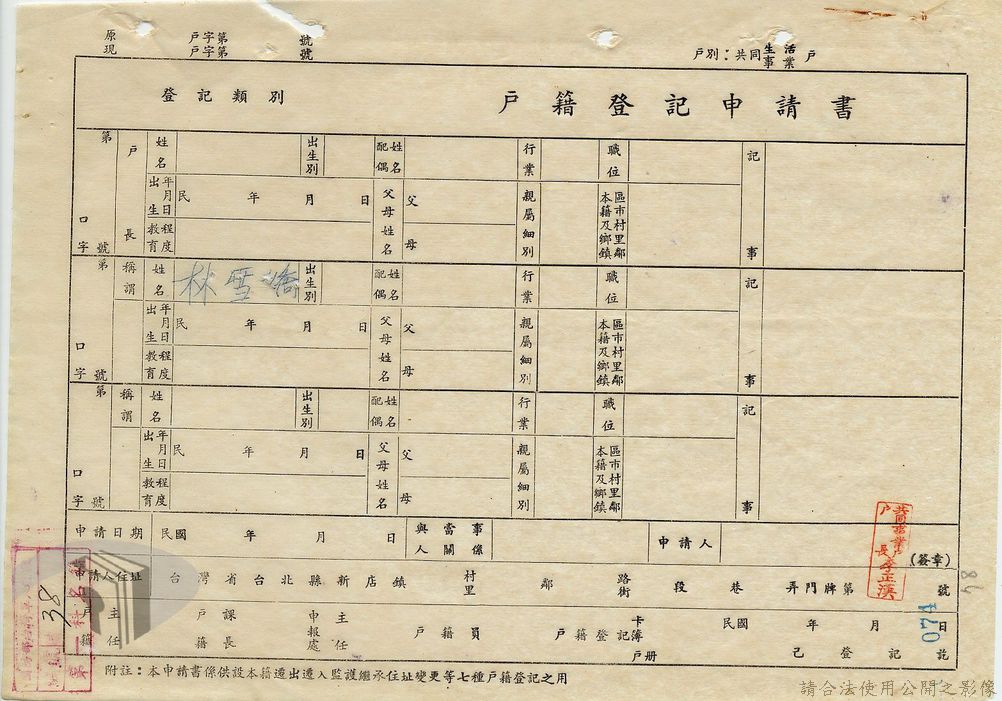 原 戶字第 號
現 戶字第 號
戶別：共同生活事業戶
登記類別
戶籍登記申請書
第 口 號 字
戶長
姓名
出生別
配偶姓名
行業
職位
記事
出生年月日
民 年 月 日
父母姓名
父
母
親屬細別
本籍及鄉鎮區市村里鄰
教育程度
第 口 號 字
稱謂
姓名
林雪嬌
出生別
配偶姓名
行業
職位
記事
出生年月日
民 年 月 日
父母姓名
父
母
親屬細別
本籍及鄉鎮區市村里鄰
教育程度
第 口 號 字
稱謂
姓名
出生別
配偶姓名
行業
職位
記事
出生年月日
民 年 月 日
父母姓名
父
母
親屬細別
本籍及鄉鎮區市村里鄰
教育程度
申請日期 民國 年 月 日
與當事人關係
申請人
(簽章)
共同事業戶
戶長李正漢
申請人住址 台灣省台北縣新店鎮 村里 鄰 路街 段 巷 弄門牌第 號
戶籍主任
戶籍課長
申報處主任
戶籍員
戶籍登記卡簿戶册
民國 年 月 日
已登記訖
38
074
38
附註：本申請書係供設本籍遷出遷入監護繼承住址變更等七種戶籍登記之用
請合法使用公開之影像